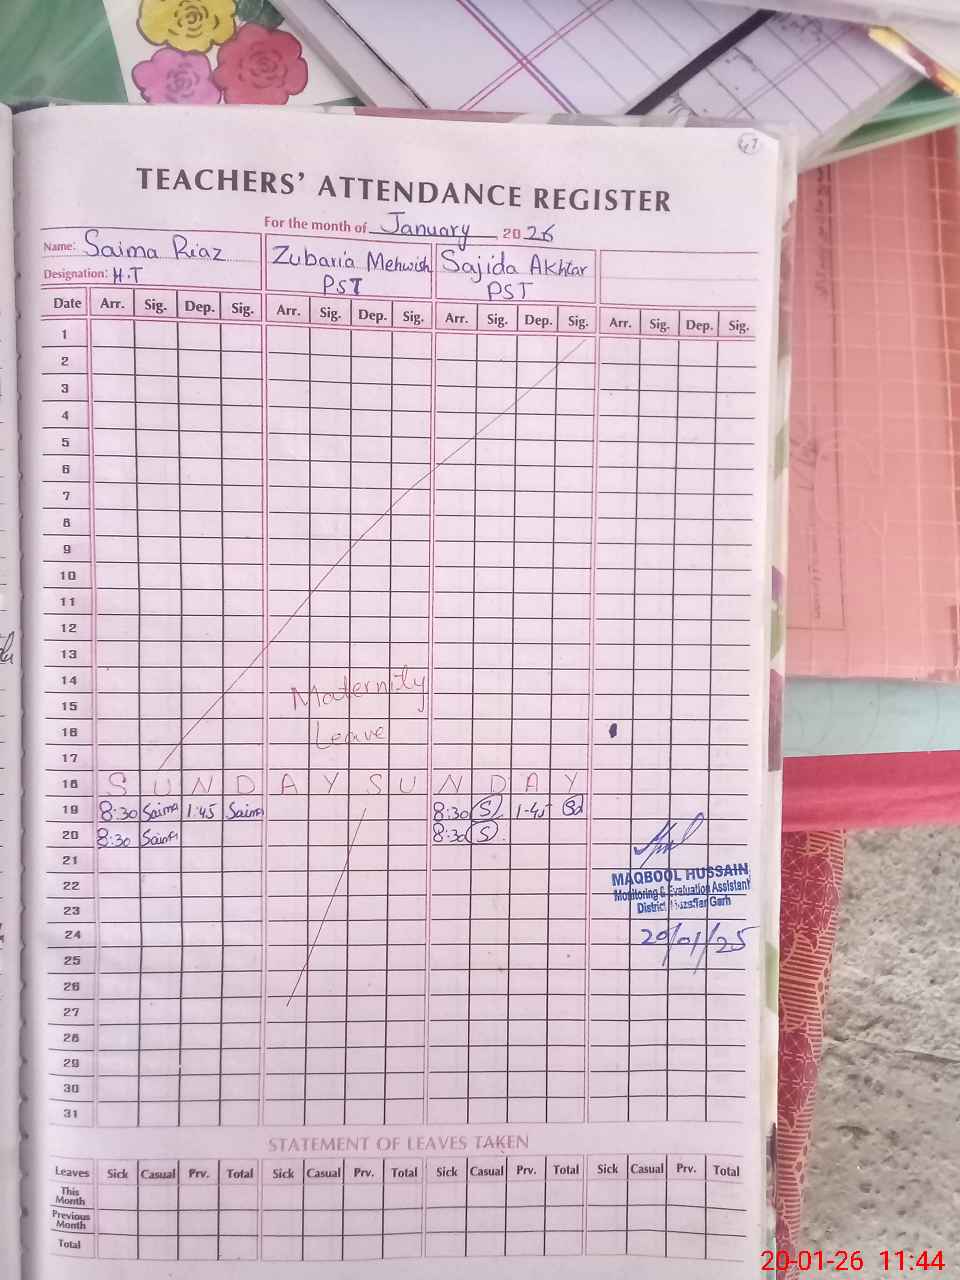 47
TEACHERS' ATTENDANCE REGISTER
For the month of January 2026
Name: Saima Riaz Zubaria Mehwish Sajida Akhtar
Designation: H.T PST PST
Date Arr. Sig. Dep. Sig. Arr. Sig. Dep. Sig. Arr. Sig. Dep. Sig. Arr. Sig. Dep. Sig.
1
2
3
4
5
6
7
8
9
10
11
12
13
14 Maternity
15
16 Leave
17
18 S U N D A Y S U N D A Y
19 8:30 Saima 1:45 Saima 8:30 S 1-45
20 8:30 Saima 8:30 S
21
22
23
24
25
26
27
28
29
30
31
MAQBOOL HUSSAIN
Monitoring & Evaluation Assistant
District Muzaffar Garh
20/01/25
STATEMENT OF LEAVES TAKEN
Leaves Sick Casual Prv. Total Sick Casual Prv. Total Sick Casual Prv. Total Sick Casual Prv. Total
This Month
Previous Month
Total
20-01-26 11:44